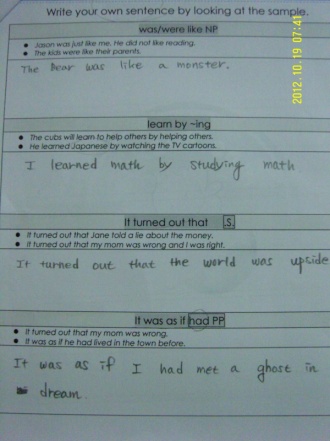 Write your own sentence by looking at the sample.
2012.10.19 07:41
was/were like NP
● Jason was just like me. He did not like reading.
● The kids were like their parents.
The Bear was like a monster.
learn by ~ing
● The cubs will learn to help others by helping others.
● He learned Japanese by watching the TV cartoons.
I learned math by studying math
It turned out that S.
● It turned out that Jane told a lie about the money.
● It turned out that my mom was wrong and I was right.
It turned out that the world was upside
It was as if had PP
● It turned out that my mom was wrong.
● It was as if he had lived in the town before.
It was as if I had met a ghost in
dream.